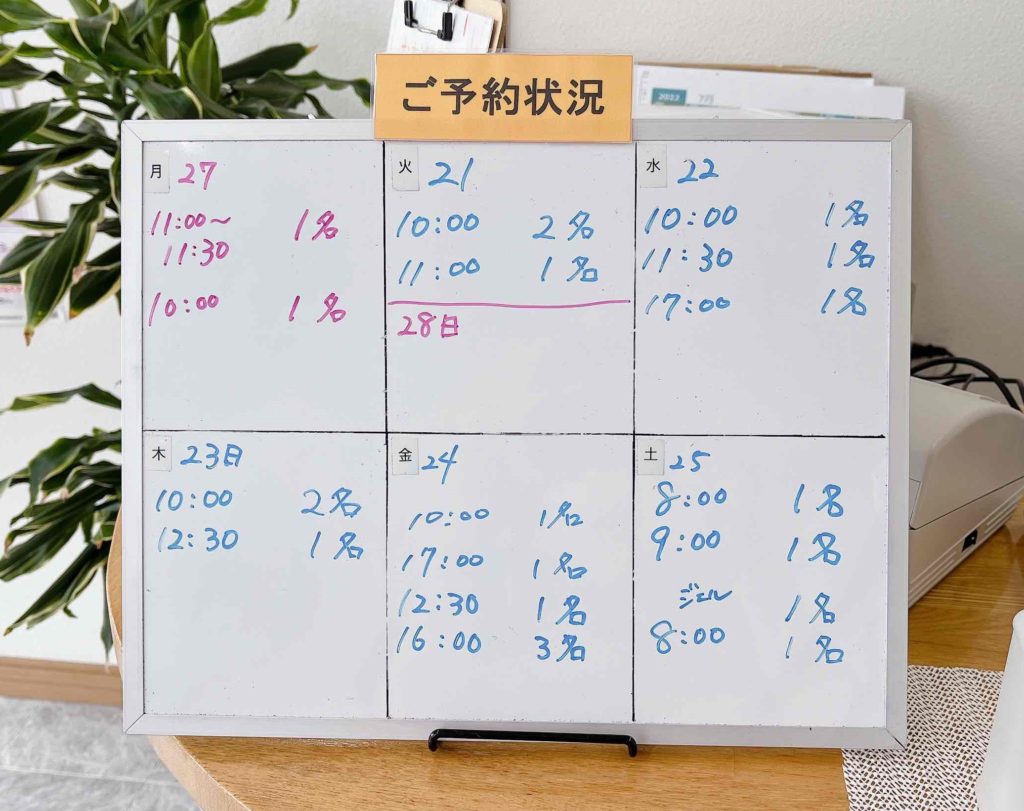 ご予約状況
2022 7月
月 27
11:00~ 1名
11:30
10:00 1名
火 21
10:00 2名
11:00 1名
28日
水 22
10:00 1名
11:30 1名
17:00 1名
木 23日
10:00 2名
12:30 1名
金 24
10:00 1名
17:00 1名
12:30 1名
16:00 3名
土 25
8:00 1名
9:00 1名
ジェル 1名
8:00 1名